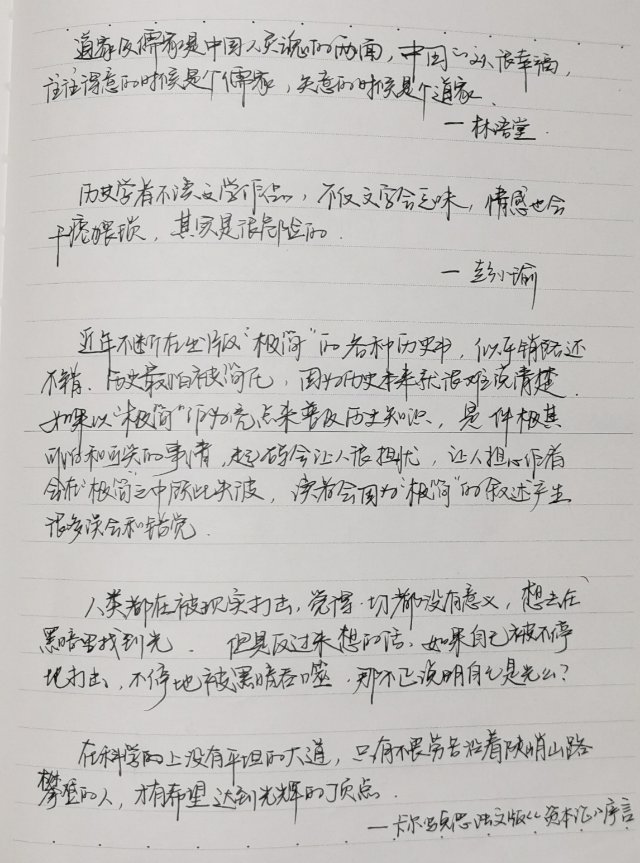 道家及儒家是中国人灵魂的两面，中国的文人很幸福，
往往得意的时候是个儒家，失意的时候是个道家．
—林语堂
历史学者不读文学作品，不仅文字会乏味，情感也会
干瘪猥琐，其实是很危险的．
—彭小瑜
近年不断在出版"极简"的各种历史书，似乎销路还
不错．历史最怕被简化，因为历史本来就很难说清楚．
如果以"极简"作为亮点来普及历史知识，是件极其
可怕和可笑的事情，起码会让人很担忧，让人担心作者
会在"极简"之中顾此失彼，读者会因为"极简"的叙述产生
很多误会和错觉．
人类都在被现实打击，觉得一切都没有意义，想去在
黑暗里找到光．但是反过来想的话，如果自己被不停
地打击，不停地被黑暗吞噬，那不正说明自己是光么？
在科学的上没有平坦的大道，只有不畏劳苦沿着陡峭山路
攀登的人，才有希望达到光辉的顶点．
—卡尔·马克思 法文版《资本论》序言